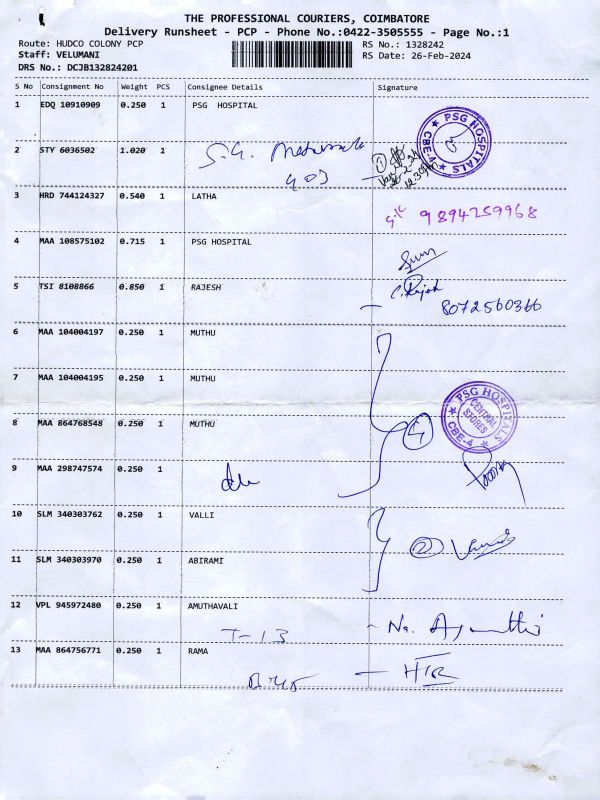 THE PROFESSIONAL COURIERS, COIMBATORE
Delivery Runsheet - PCP - Phone No.:0422-3505555 - Page No.:1
Route: HUDCO COLONY PCP RS No.: 1328242
Staff: VELUMANI RS Date: 26-Feb-2024
DRS No.: DCJB132824201
S No Consignment No Weight PCS Consignee Details Signature
1 EDQ 10910909 0.250 1 PSG HOSPITAL
PSG HOSPITALS
CBE-4
2 STY 6036502 1.020 1
3 HRD 744124327 0.540 1 LATHA
9894259968
4 MAA 108575102 0.715 1 PSG HOSPITAL
5 TSI 8108866 0.850 1 RAJESH
C. Rajesh
8072560366
6 MAA 104004197 0.250 1 MUTHU
7 MAA 104004195 0.250 1 MUTHU
PSG HOSPITALS
CENTRAL STORES
CBE-4
8 MAA 864768548 0.250 1 MUTHU
4
9 MAA 298747574 0.250 1
10 SLM 340303762 0.250 1 VALLI
2
11 SLM 340303970 0.250 1 ABIRAMI
12 VPL 945972480 0.250 1 AMUTHAVALI
T-13
13 MAA 864756771 0.250 1 RAMA